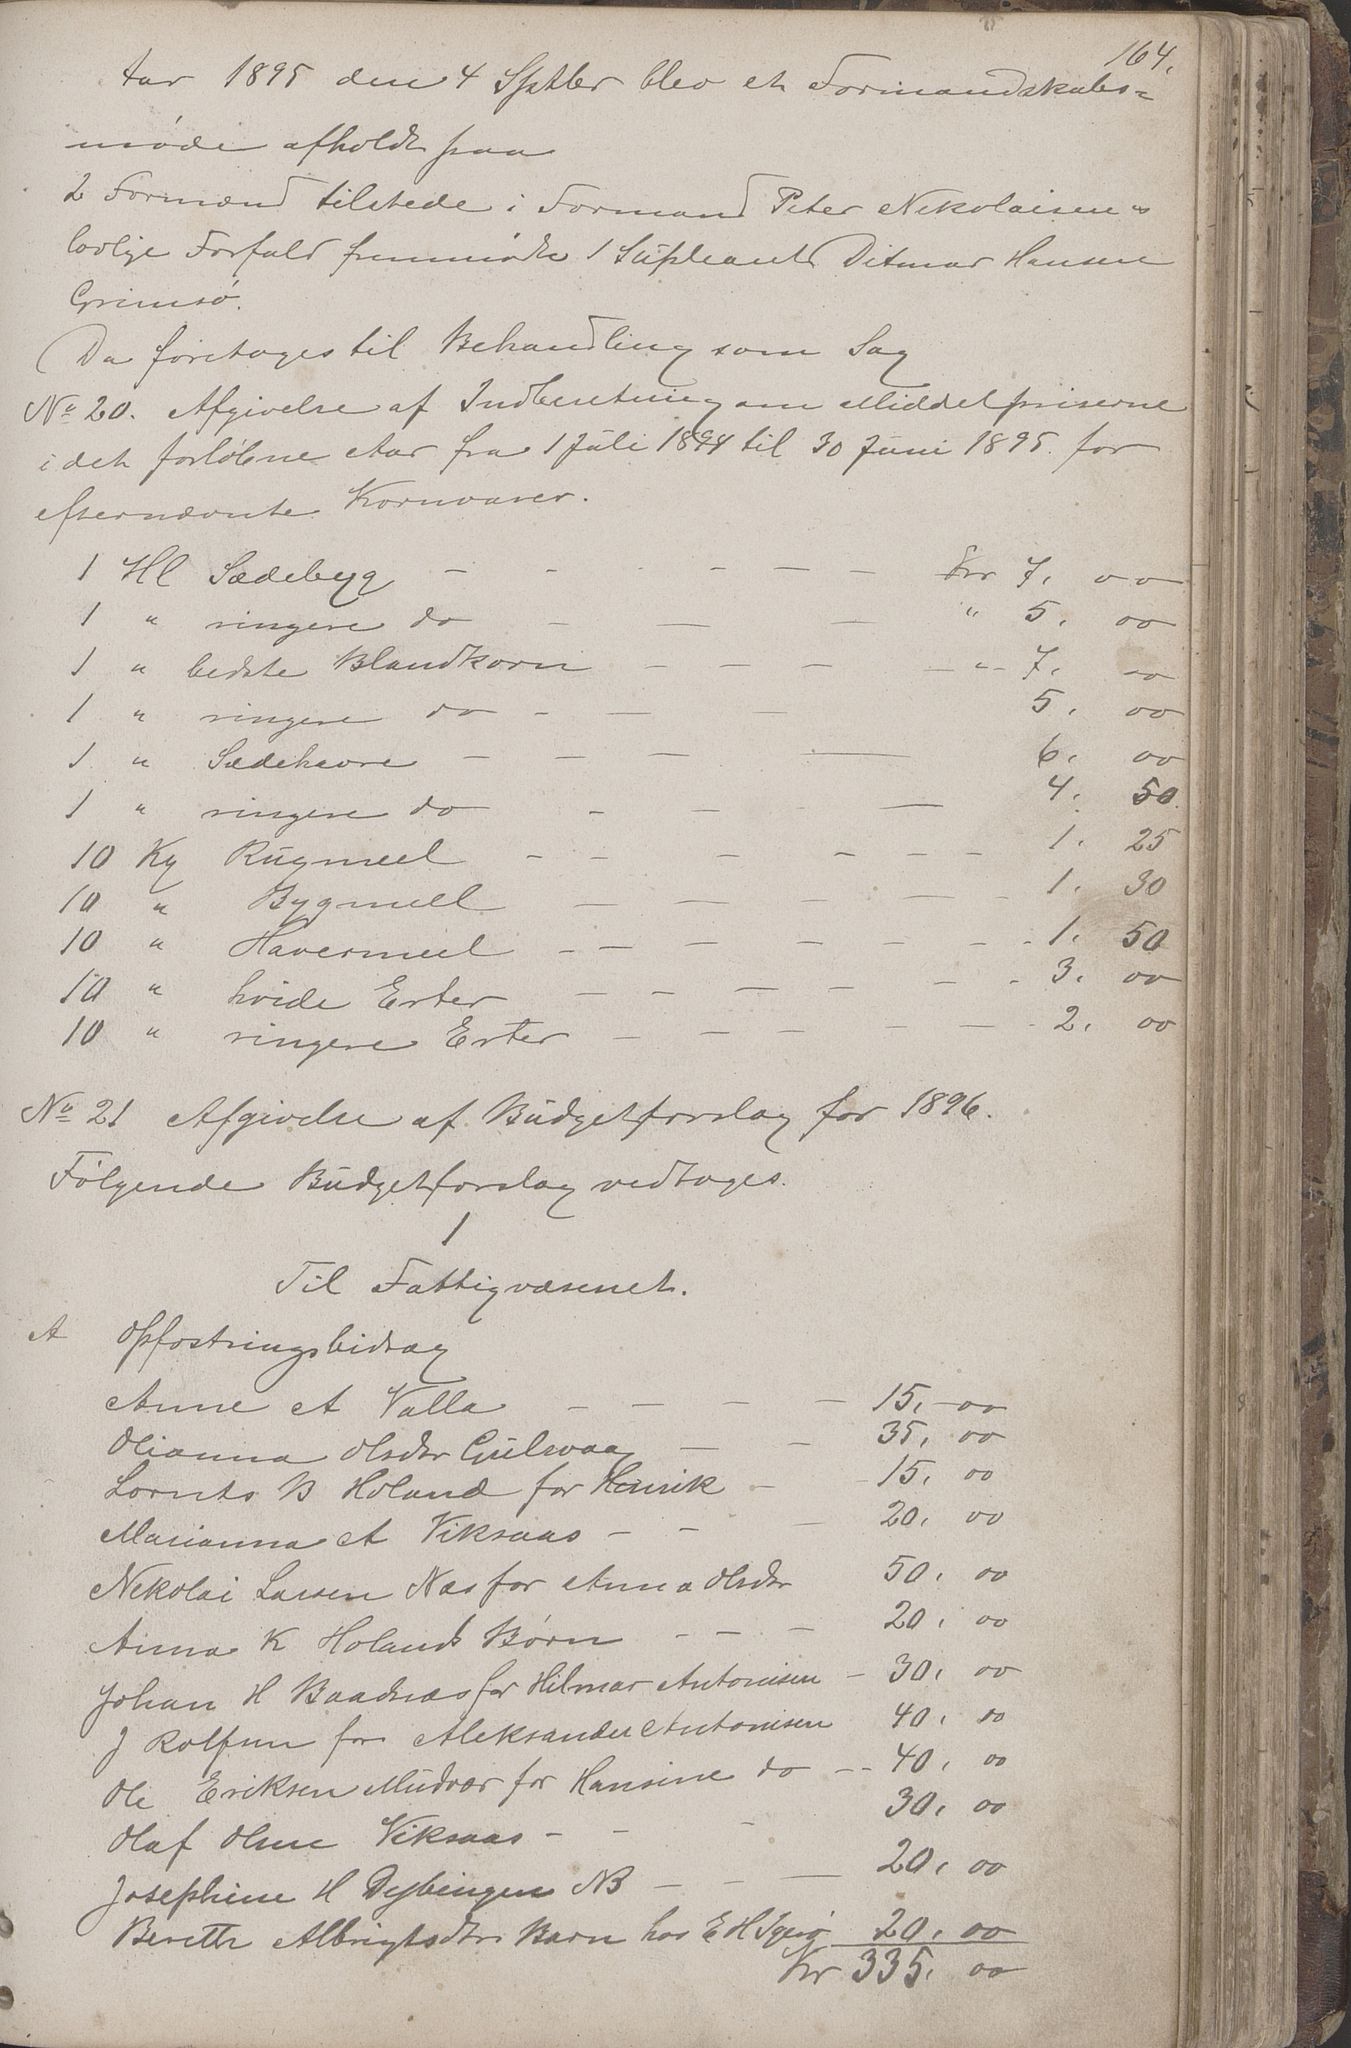 164.
Aar 1895 den 4 Sptbr blev et Formandskabs=
møde afholdt paa
2 Formænd tilstede i Formand Peter Nekolaisens
lovlige Forfald fremmødte 1 Supleant Ditmar Hansen
Grimsø.
Da foretoges til Behandling som Sag
No 20. Afgivelse af Indberetning om Middelpriserne
i det forløbne Aar fra 1 Juli 1894 til 30 Juni 1895. for
efternævnte Kornvarer.
1 Hl Sædebyg - - - - - - Kr 7, 00
1 " ringere do - - - " 5, 00
1 " bedste Blandkorn - - - - " - 7, 00
1 " ringere do - - - 5, 00
1 " Sædehavre - - - - 6, 00
1 " ringere do - - - 4, 50
10 Kg Rugmeel - - - - - - 1, 25
10 " Bygmeel - - - - - - 1, 30
10 " Havermeel - - - - - - - - 1, 50
10 " hvide Erter - - - - - - 3, 00
10 " ringere Erter - - - - - - 2, 00
No 21 Afgivelse af Budgetforslag for 1896.
Følgende Budgetforslag vedtoges.
1
Til Fattigvæsenet.
A Opfostringsbidrag
Anne A Valla - - - - 15, 00
Olianna Olsdtr Gulsvaag - - 35, 00
Lornts B Holand for Henrik - - 15, 00
Marianna A Viksaas - - - 20, 00
Nekolai Larsen Næs for Anna Olsdtr 50, 00
Anna K Holands Børn - - - 20, 00
Johan H Baadnæs for Hilmar Antonisen - 30, 00
J Rolfsen for Aleksander Antonisen 40, 00
Ole Eriksen Mudvær for Hansine do - - 40, 00
Olaf Olsen Viksaas - - - 30, 00
Josephine H Dybingen NB - - - 20, 00
Bereth Albrigtsdtr Barn hos E H 20, 00
Kr 335, 00